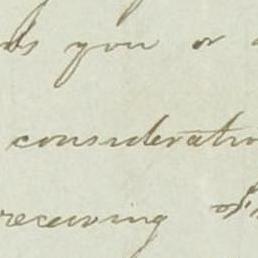 you or
consideratio
receiving